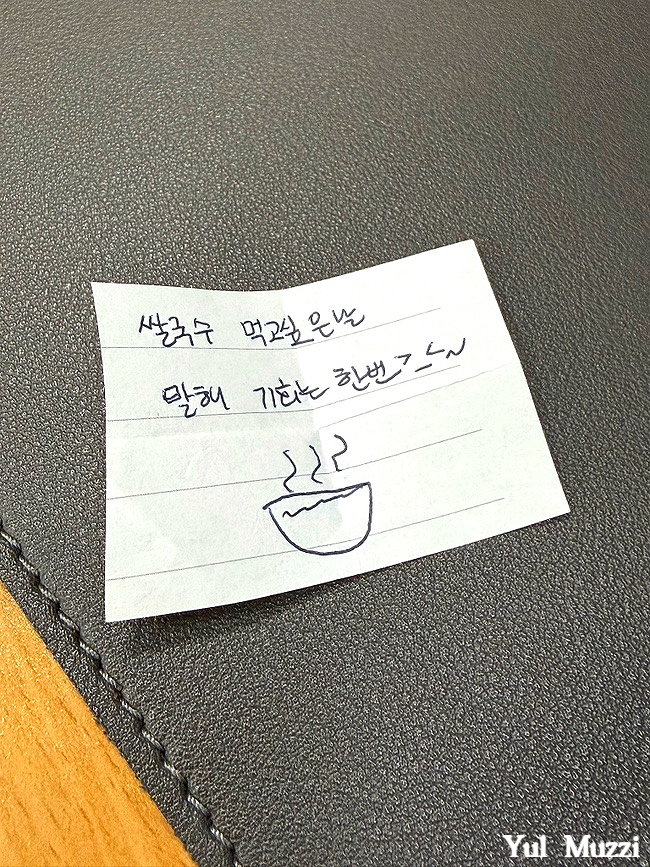 쌀국수 먹고싶은날
말해 기회는 한번ㄱㅡㄴ~
Yul Muzzi